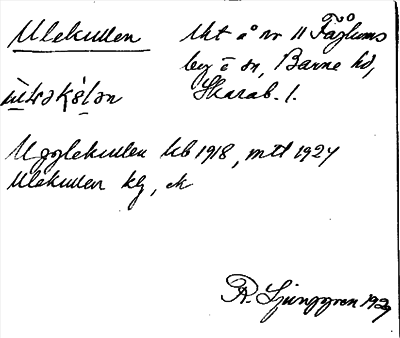 Ulekullen
Ukt å nr 11 Fåglums
by o sn, Barne hd,
Skarab. l.
Ugglekullen kb 1918, mtl 1927
Ulekullen kg, ek
R. Ljunggren 1927